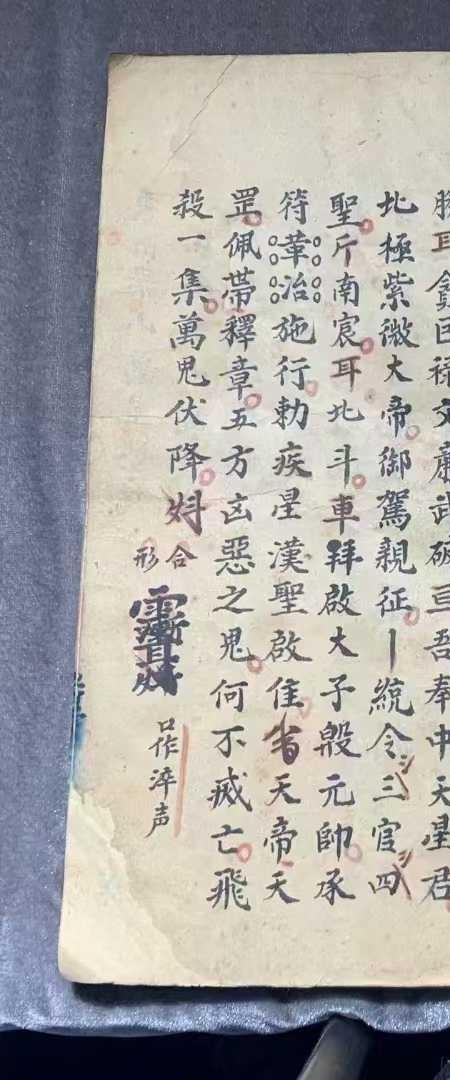 耳貪巨祿文廉武破亘吾奉中天星君
北極紫微大帝御駕親征丨統令三官四
聖斤南宸耳北斗車拜啟大子殷元帥承
符華冶施行勅疾星漢聖啟隹省天帝天
罡佩帶釋章五方凶惡之鬼何不滅亡飛
殺一集萬鬼伏降
合形
口作滓声